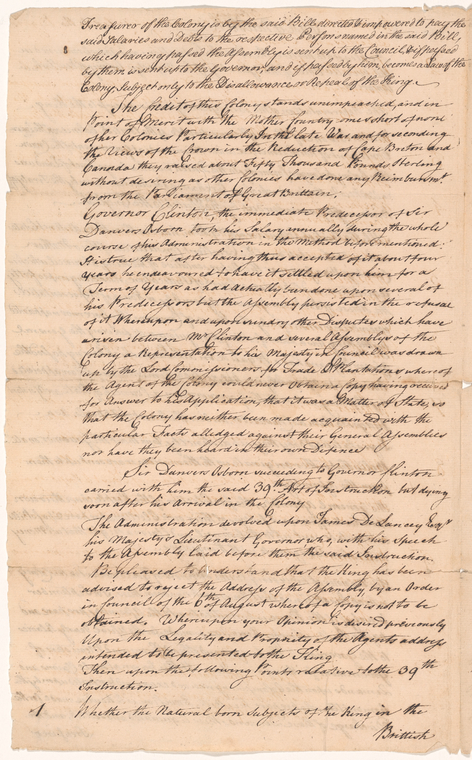 Treasurer of the Colony is by the said Bill directed & impowered to pay the
said Salaries and Debts to the respective Persons named in the said Bill,
which having passed the Assembly is sent up to the Council, & if passed
by them is sent up to the Governor, and if passed by Them, becomes a Law of the
Colony Subject only to the Disallowance or Repeal of the King.
The Credit of this Colony stands unimpeached, and in
Point of Merit with the Mother Country comes short of none
of her Colonies Particularly In the late War and for seconding
the Views of the Crown in the Reduction of Cape Breton and
Canada they raised about Fifty Thousand Pounds Sterling
without desiring as other Colonies have done any Reimbursmt
from the Parliament of Great Brittain.
Governor Clinton, the immediate Predecessor of Sir
Danvers Osborn took his Salary annually during the whole
course of his Administration in the Method before mentioned:
His true that after having thus accepted of it about four
years he endeavoured to have it settled upon him for a
Term of Years as had actually been done upon several of
his Predecessors but the Assembly persisted in the refusal
of it Whereupon and upon sundry other Disputes which have
arisen between Mr Clinton and several Assemblys of the
Colony a Representation to his Majesty in Council was drawn
up by the Lord Commissioners for Trade & Plantations whereof
the Agent of the Colony could never obtain a Copy having received
for Answer to his Application, that it was a Matter of State, so
that the Colony has neither been made acquainted with the
particular Facts alledged against their General Assemblies
nor have they been heard in their own Defence
Sir Danvers Osborn succeeding to Governor Clinton
carried with him the said 39th Art of Instruction but dying
soon after his Arrival in the Colony
The Administration devolved upon James De Lancey Esqr
his Majesty's Lieutenant Governor who, with his Speech
to the Assembly laid before them the said Instruction.
Be pleased to understand that the King has been
advised to reject the Address of the Assembly by an Order
in Councell of the 6th of August whereof a Copy is not to be
obtained. Whereupon your Opinion is desired previously
Upon the Legality and Propriety of the Agents address
intended to be presented to the King
Then upon the following Points relative to the 39th
Instruction.
1 Whether the Natural born Subjects of the King in the
Brittish